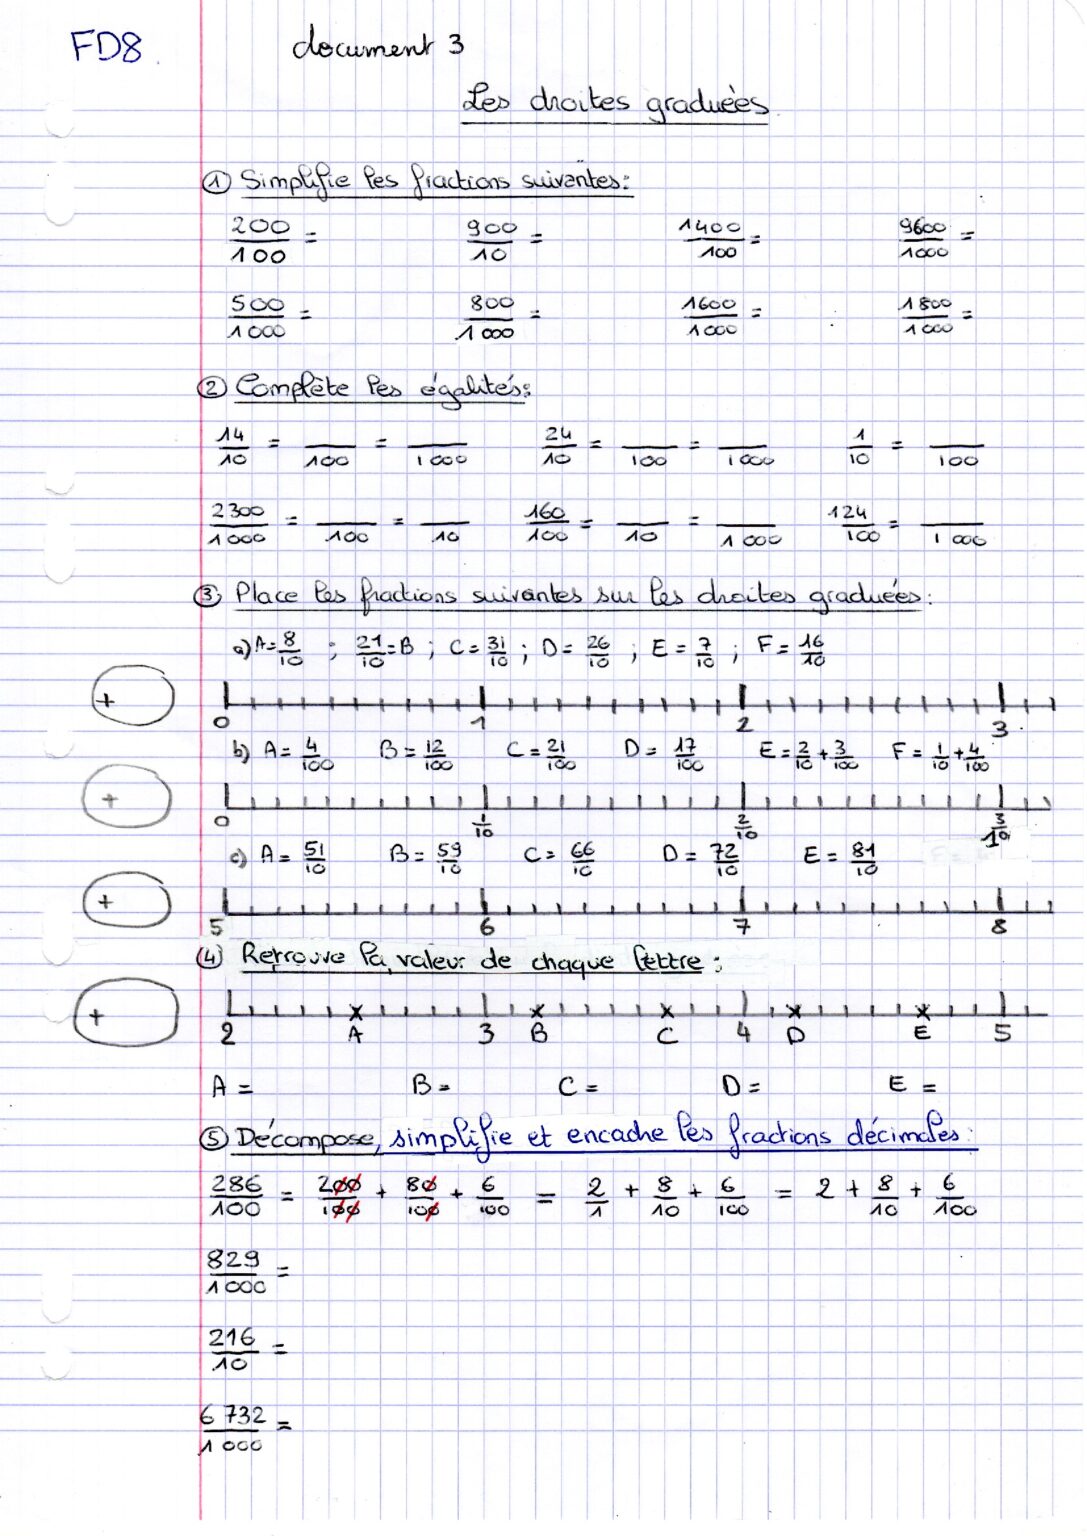 FD8. document 3
Les droites graduées
① Simplifie les fractions suivantes:
200/100 = 900/10 = 1400/100 = 9600/1000 =
500/1000 = 800/1000 = 1600/1000 = 1800/1000 =
② Complète les égalités:
14/10 = /100 = /1000 24/10 = /100 = /1000 1/10 = /100
2300/1000 = /100 = /10 160/100 = /10 = /1000 124/100 = /1000
③ Place les fractions suivantes sur les droites graduées:
a) A = 8/10 ; 21/10 = B ; C = 31/10 ; D = 26/10 ; E = 7/10 ; F = 16/10
+
0 1 2 3
b) A = 4/100 B = 12/100 C = 21/100 D = 17/100 E = 2/10 + 3/100 F = 1/10 + 4/100
+
0 1/10 2/10 3/10
c) A = 51/10 B = 59/10 C = 66/10 D = 72/10 E = 81/10
+
5 6 7 8
④ Retrouve la valeur de chaque lettre :
+
2 A 3 B C 4 D E 5
A = B = C = D = E =
⑤ Décompose, simplifie et encache les fractions décimales:
286/100 = 200/100 + 80/100 + 6/100 = 2/1 + 8/10 + 6/100 = 2 + 8/10 + 6/100
829/1000 =
216/10 =
6 732/1 000 =